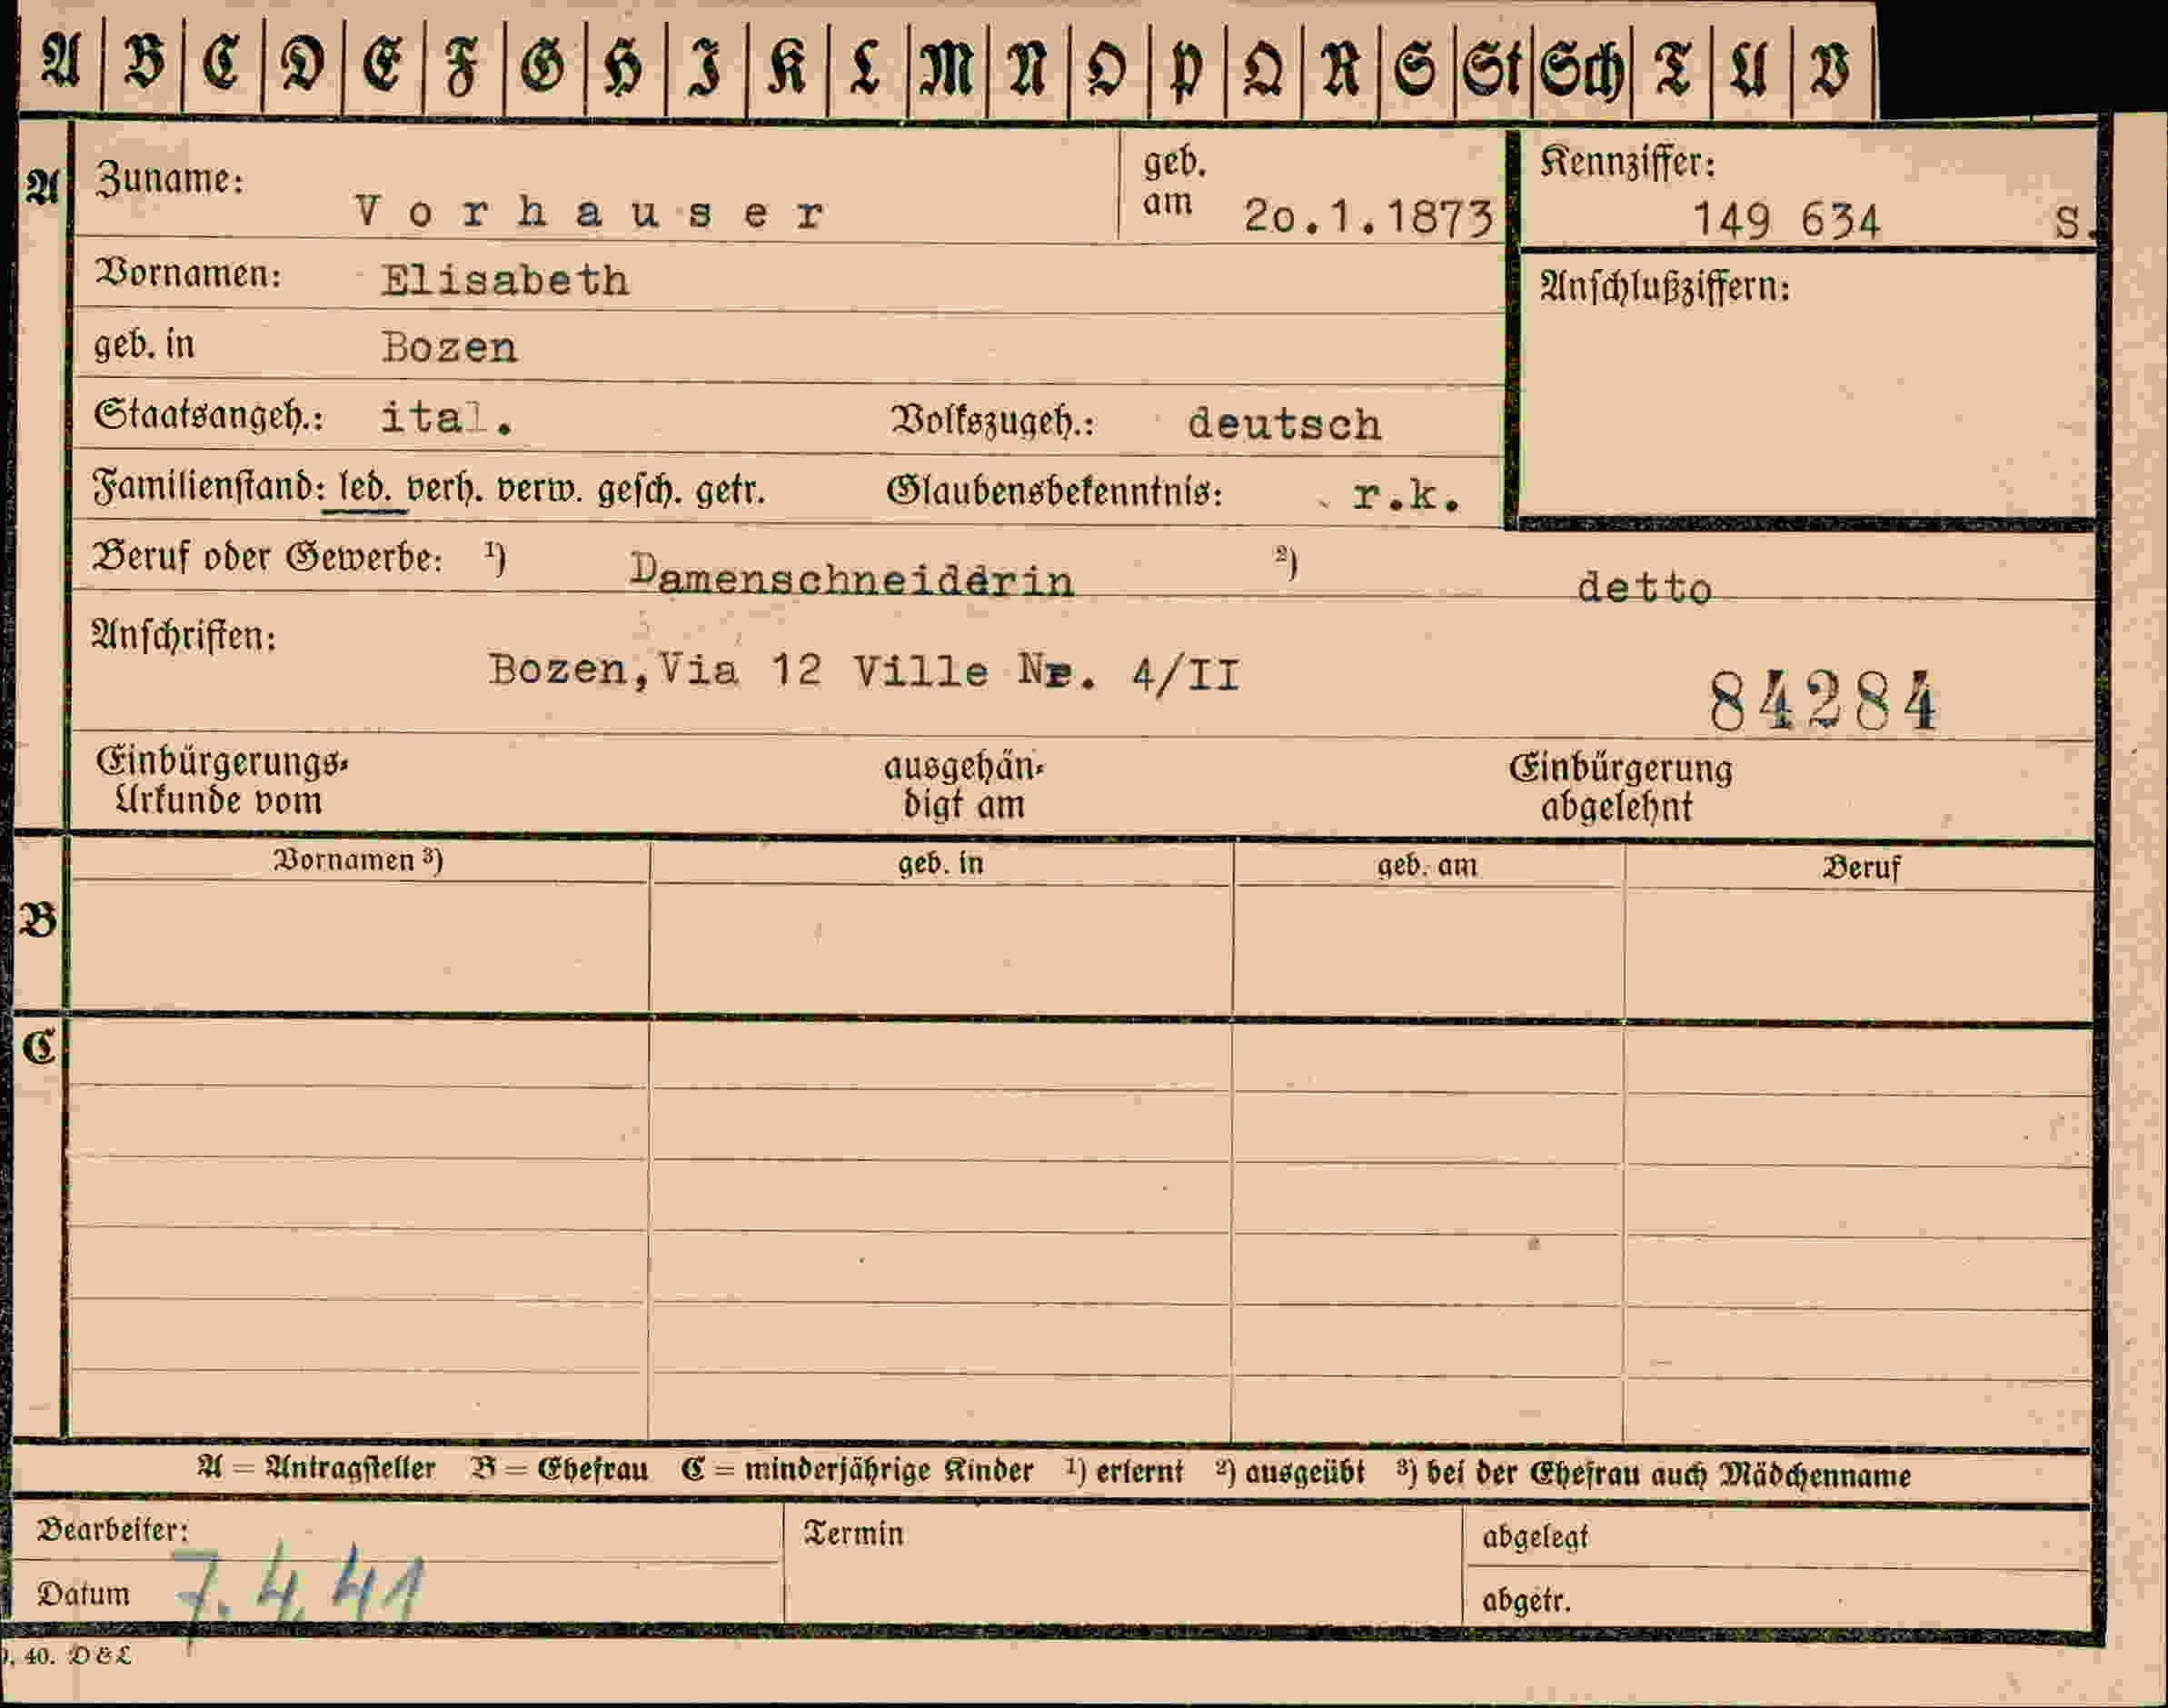 A B C D E F G H I K L M N O P Q R S St Sch T U V
A Zuname: Vorhauser geb. am 20.1.1873 Kennziffer: 149 634 S.
Vornamen: Elisabeth Anschlußziffern:
geb. in Bozen
Staatsangeh.: ital. Volkszugeh.: deutsch
Familienstand: led. verh. verw. gesch. getr. Glaubensbekenntnis: r.k.
Beruf oder Gewerbe: 1) Damenschneiderin 2) detto
Anschriften:
Bozen,Via 12 Ville Nr. 4/II 84284
Einbürgerungs- ausgehän- Einbürgerung
Urkunde vom digt am abgelehnt
Vornamen 3) geb. in geb. am Beruf
B
C
A = Antragsteller B = Ehefrau C = minderjährige Kinder 1) erlernt 2) ausgeübt 3) bei der Ehefrau auch Mädchenname
Bearbeiter: Termin abgelegt
Datum 7.4.41 abgetr.
40. D&L